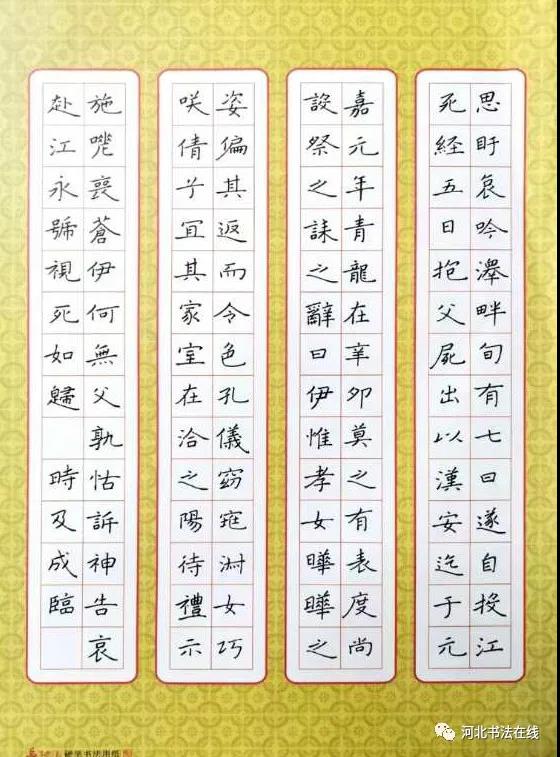 思盱哀吟澤畔旬有七日遂自投江
死経五日抱父屍出以漢安迄于元
嘉元年青龍在辛卯莫之有表度尚
設祭之誄之辭曰伊惟孝女曄曄之
姿偏其返而令色孔儀窈窕淑女巧
咲倩子宜其家室在洽之陽待禮示
施嗟喪蒼伊何無父孰怙訴神告哀
赴江永號視死如歸 時及成臨
硬笔书法用纸
河北书法在线